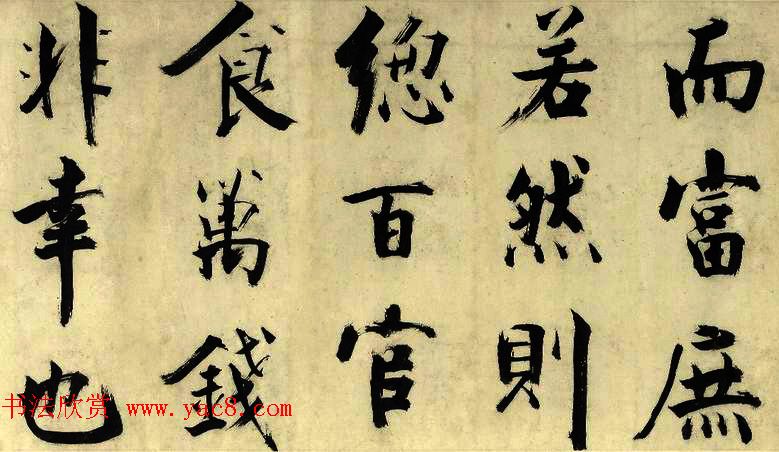 而富庶
若然則
總百官
食萬錢
非幸也
书法欣赏 www.yac8.com